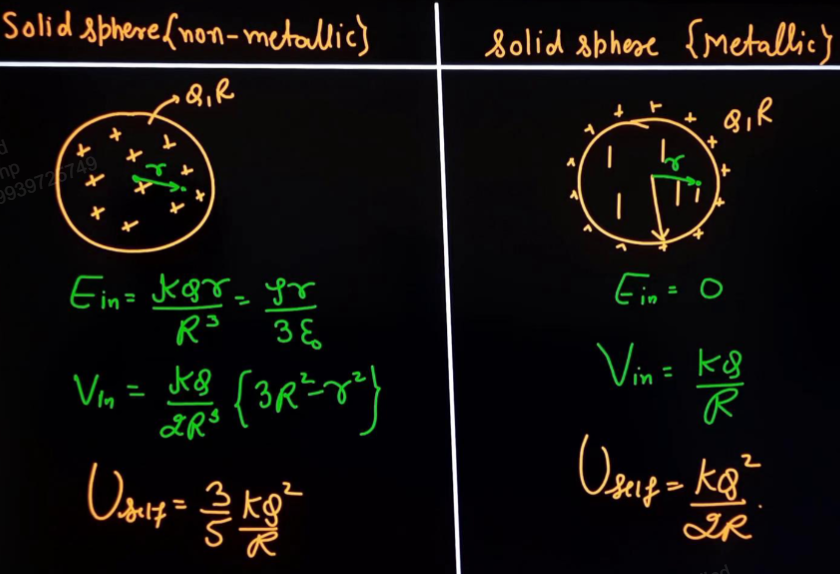 Solid sphere {non-metallic}
Q, R
r
E in = kQr/R³ = ρr/3ε₀
V in = kQ/2R³ {3R²-r²}
U self = 3/5 kQ²/R
Solid sphere {Metallic}
Q, R
r
E in = 0
V in = kQ/R
U self = kQ²/2R.